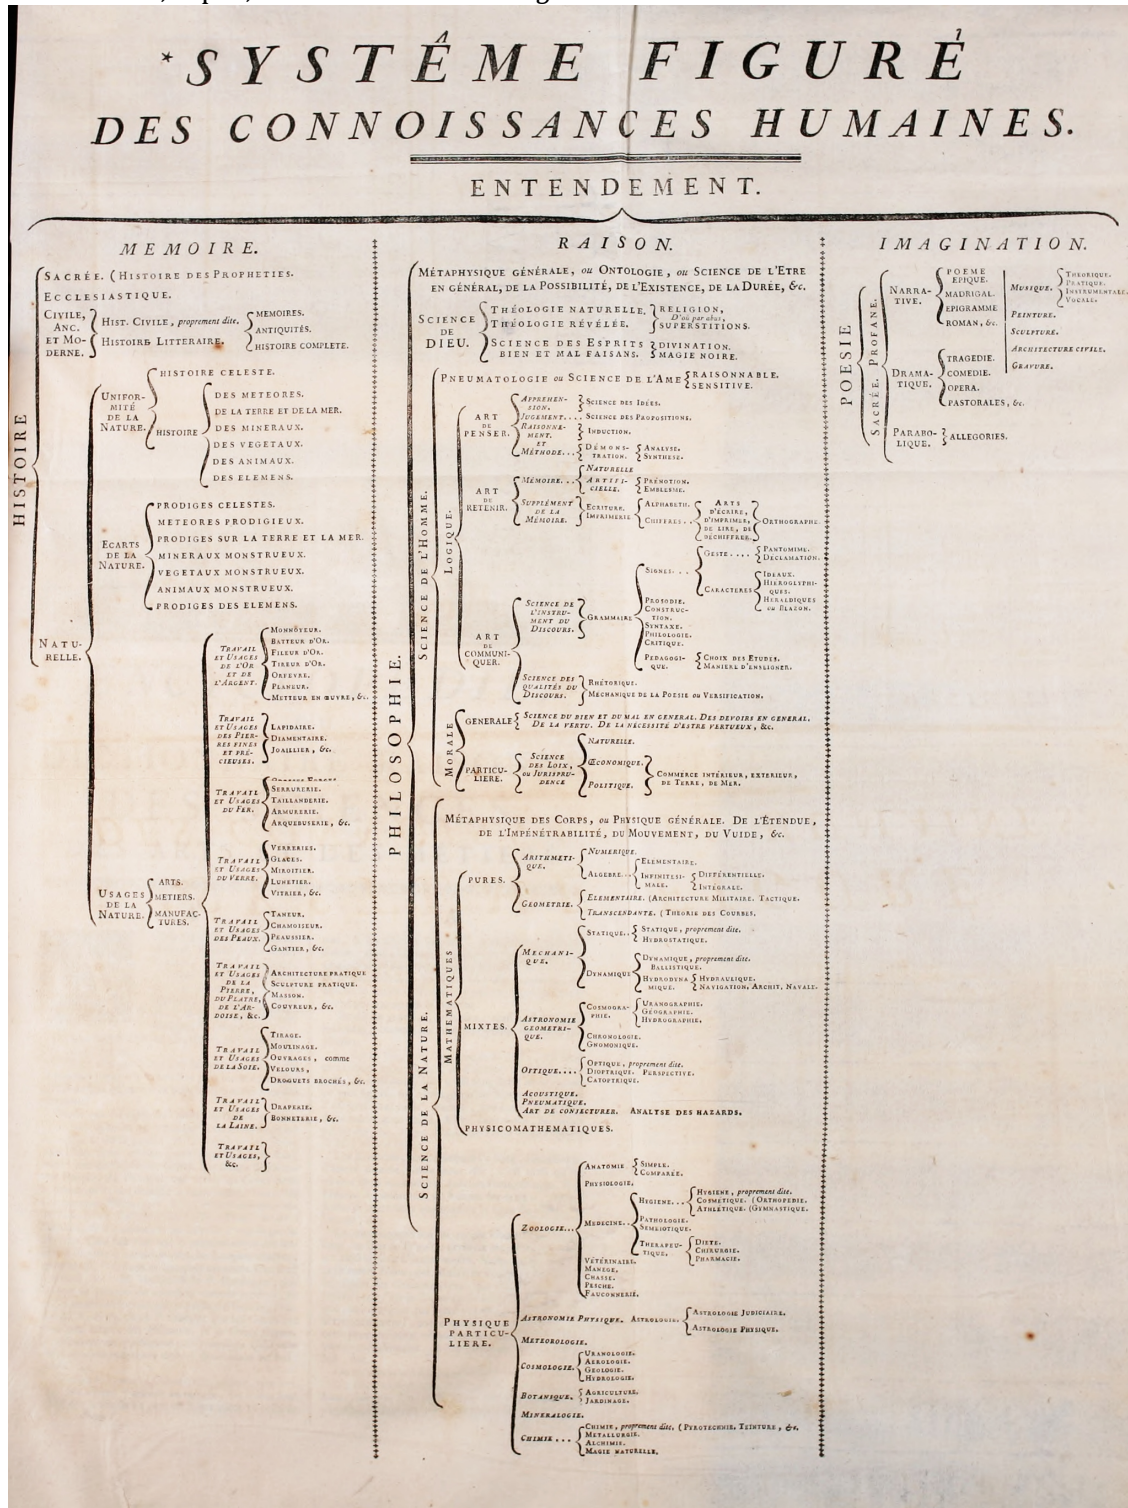 *SYSTÉME FIGURÉ
DES CONNOISSANCES HUMAINES.
ENTENDEMENT.
MEMOIRE.
HISTOIRE
SACRÉE. (HISTOIRE DES PROPHETIES.
ECCLESIASTIQUE.
CIVILE,
ANC.
ET MO-
DERNE.
HIST. CIVILE, proprement dite.
HISTOIRE LITTERAIRE.
MEMOIRES.
ANTIQUITÉS.
HISTOIRE COMPLETE.
NATU-
RELLE.
UNIFOR-
MITÉ
DE LA
NATURE.
HISTOIRE CELESTE.
HISTOIRE
DES METEORES.
DE LA TERRE ET DE LA MER.
DES MINERAUX.
DES VEGETAUX.
DES ANIMAUX.
DES ELEMENS.
ECARTS
DE LA
NATURE.
PRODIGES CELESTES.
METEORES PRODIGIEUX.
PRODIGES SUR LA TERRE ET LA MER.
MINERAUX MONSTRUEUX.
VEGETAUX MONSTRUEUX.
ANIMAUX MONSTRUEUX.
PRODIGES DES ELEMENS.
USAGES
DE LA
NATURE.
ARTS.
METIERS.
MANUFAC-
TURES.
TRAVAIL
ET USAGES
DE L'OR
ET DE
L'ARGENT.
MONNOYEUR.
BATTEUR D'OR.
FILEUR D'OR.
TIREUR D'OR.
ORFEVRE.
PLANEUR.
METTEUR EN ŒUVRE, &c.
TRAVAIL
ET USAGES
DES PIER-
RES FINES
ET PRÉ-
CIEUSES.
LAPIDAIRE.
DIAMENTAIRE.
JOAILLIER, &c.
TRAVAIL
ET USAGES
DU FER.
SERRURERIE.
TAILLANDERIE.
ARMURERIE.
ARQUEBUSERIE, &c.
TRAVAIL
ET USAGES
DU VERRE.
VERRERIES.
GLACES.
MIROITIER.
LUNETIER.
VITRIER, &c.
TRAVAIL
ET USAGES
DES PEAUX.
TANEUR.
CHAMOISEUR.
PEAUSSIER.
GANTIER, &c.
TRAVAIL
ET USAGES
DE LA
PIERRE,
DU PLATRE,
DE L'AR-
DOISE, &c.
ARCHITECTURE PRATIQUE
SCULPTURE PRATIQUE.
MASSON.
COUVREUR, &c.
TRAVAIL
ET USAGES
DE LA SOIE.
TIRAGE.
MOULINAGE.
OUVRAGES, comme
VELOURS,
DROGUETS BROCHÉS, &c.
TRAVAIL
ET USAGES
DE
LA LAINE.
DRAPERIE.
BONNETERIE, &c.
TRAVAIL
ET USAGES,
&c.
RAISON.
PHILOSOPHIE.
MÉTAPHYSIQUE GÉNÉRALE, ou ONTOLOGIE, ou SCIENCE DE L'ETRE
EN GÉNÉRAL, DE LA POSSIBILITÉ, DE L'EXISTENCE, DE LA DURÉE, &c.
SCIENCE
DE
DIEU.
THÉOLOGIE NATURELLE.
THÉOLOGIE RÉVÉLÉE.
RELIGION,
D'où par abus,
SUPERSTITIONS.
SCIENCE DES ESPRITS
BIEN ET MAL FAISANS.
DIVINATION.
MAGIE NOIRE.
SCIENCE DE L'HOMME.
PNEUMATOLOGIE ou SCIENCE DE L'AME
RAISONNABLE.
SENSITIVE.
LOGIQUE.
ART
DE
PENSER.
APPREHEN-
SION.
SCIENCE DES IDÉES.
JUGEMENT....
SCIENCE DES PROPOSITIONS.
RAISONNE-
MENT.
INDUCTION.
ET
MÉTHODE...
DÉMONS-
TRATION.
ANALYSE.
SYNTHESE.
ART
DE
RETENIR.
MÉMOIRE...
NATURELLE
ARTIFI-
CIELLE.
PRÉNOTION.
EMBLESME.
SUPPLÉMENT
DE LA
MÉMOIRE.
ECRITURE.
IMPRIMERIE
ALPHABETH.
CHIFFRES..
ARTS
D'ÉCRIRE,
D'IMPRIMER,
DE LIRE, DE
DÉCHIFFRER.
ORTHOGRAPHE
ART
DE
COMMUNI-
QUER.
SCIENCE DE
L'INSTRU-
MENT DU
DISCOURS.
GRAMMAIRE
SIGNES...
GESTE....
PANTOMIME.
DECLAMATION.
CARACTERES
IDEAUX.
HIEROGLYPHI-
QUES.
HERALDIQUES
ou BLAZON.
PROSODIE.
CONSTRUC-
TION.
SYNTAXE.
PHILOLOGIE.
CRITIQUE.
PEDAGOGI-
QUE.
CHOIX DES ETUDES.
MANIERE D'ENSEIGNER.
SCIENCE DES
QUALITÉS DU
DISCOURS.
RHÉTORIQUE.
MECHANIQUE DE LA POESIE ou VERSIFICATION.
MORALE
GENERALE
SCIENCE DU BIEN ET DU MAL EN GENERAL. DES DEVOIRS EN GENERAL.
DE LA VERTU. DE LA NÉCESSITÉ D'ESTRE VERTUEUX, &c.
PARTICU-
LIERE.
SCIENCE
DES LOIX,
ou JURISPRU-
DENCE
NATURELLE.
ŒCONOMIQUE.
POLITIQUE.
COMMERCE INTÉRIEUR, EXTERIEUR,
DE TERRE, DE MER.
SCIENCE DE LA NATURE.
MÉTAPHYSIQUE DES CORPS, ou PHYSIQUE GÉNÉRALE. DE L'ÉTENDUE,
DE L'IMPÉNÉTRABILITÉ, DU MOUVEMENT, DU VUIDE, &c.
MATHEMATIQUES
PURES.
ARITHMETI-
QUE.
NUMERIQUE.
ALGEBRE..
ELEMENTAIRE.
INFINITESI-
MALE.
DIFFÉRENTIELLE.
INTÉGRALE.
GEOMETRIE.
ELEMENTAIRE. (ARCHITECTURE MILITAIRE. TACTIQUE.
TRANSCENDANTE. (THEORIE DES COURBES.
MIXTES.
MECHANI-
QUE.
STATIQUE..
STATIQUE, proprement dite.
HYDROSTATIQUE.
DYNAMIQUE
DYNAMIQUE, proprement dite.
BALLISTIQUE.
HYDRODYNA
MIQUE.
HYDRAULIQUE.
NAVIGATION, ARCHIT. NAVALE.
ASTRONOMIE
GEOMETRI-
QUE.
COSMOGRA-
PHIE.
URANOGRAPHIE.
GÉOGRAPHIE.
HYDROGRAPHIE.
CHRONOLOGIE.
GNOMONIQUE.
OPTIQUE....
OPTIQUE, proprement dite.
DIOPTRIQUE. PERSPECTIVE.
CATOPTRIQUE.
ACOUSTIQUE.
PNEUMATIQUE.
ART DE CONJECTURER. ANALYSE DES HAZARDS.
PHYSICOMATHEMATIQUES.
PHYSIQUE
PARTICU-
LIERE.
ZOOLOGIE...
ANATOMIE
SIMPLE.
COMPARÉE.
PHYSIOLOGIE.
MEDECINE..
HYGIENE...
HYGIENE, proprement dite.
COSMÉTIQUE. (ORTHOPEDIE.
ATHLÉTIQUE. (GYMNASTIQUE.
PATHOLOGIE.
SEMEIOTIQUE.
THERAPEU-
TIQUE.
DIETE.
CHIRURGIE.
PHARMACIE.
VÉTÉRINAIRE.
MANEGE.
CHASSE.
PESCHE.
FAUCONNERIE.
ASTRONOMIE PHYSIQUE. ASTROLOGIE.
ASTROLOGIE JUDICIAIRE.
ASTROLOGIE PHYSIQUE.
METEOROLOGIE.
COSMOLOGIE.
URANOLOGIE.
AEROLOGIE.
GEOLOGIE.
HYDROLOGIE.
BOTANIQUE.
AGRICULTURE.
JARDINAGE.
MINERALOGIE.
CHIMIE...
CHIMIE, proprement dite. (PYROTECHNIE. TEINTURE, &c.
METALLURGIE.
ALCHIMIE.
MAGIE NATURELLE.
IMAGINATION.
POESIE
SACRÉE. PROFANE.
NARRA-
TIVE.
POEME
EPIQUE.
MADRIGAL.
EPIGRAMME
ROMAN, &c.
DRAMA-
TIQUE.
TRAGEDIE.
COMEDIE.
OPERA.
PASTORALES, &c.
PARABO-
LIQUE.
ALLEGORIES.
MUSIQUE.
THEORIQUE.
PRATIQUE.
INSTRUMENTALE.
VOCALE.
PEINTURE.
SCULPTURE.
ARCHITECTURE CIVILE.
GRAVURE.